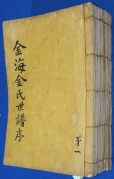 金海金氏世譜序
第一